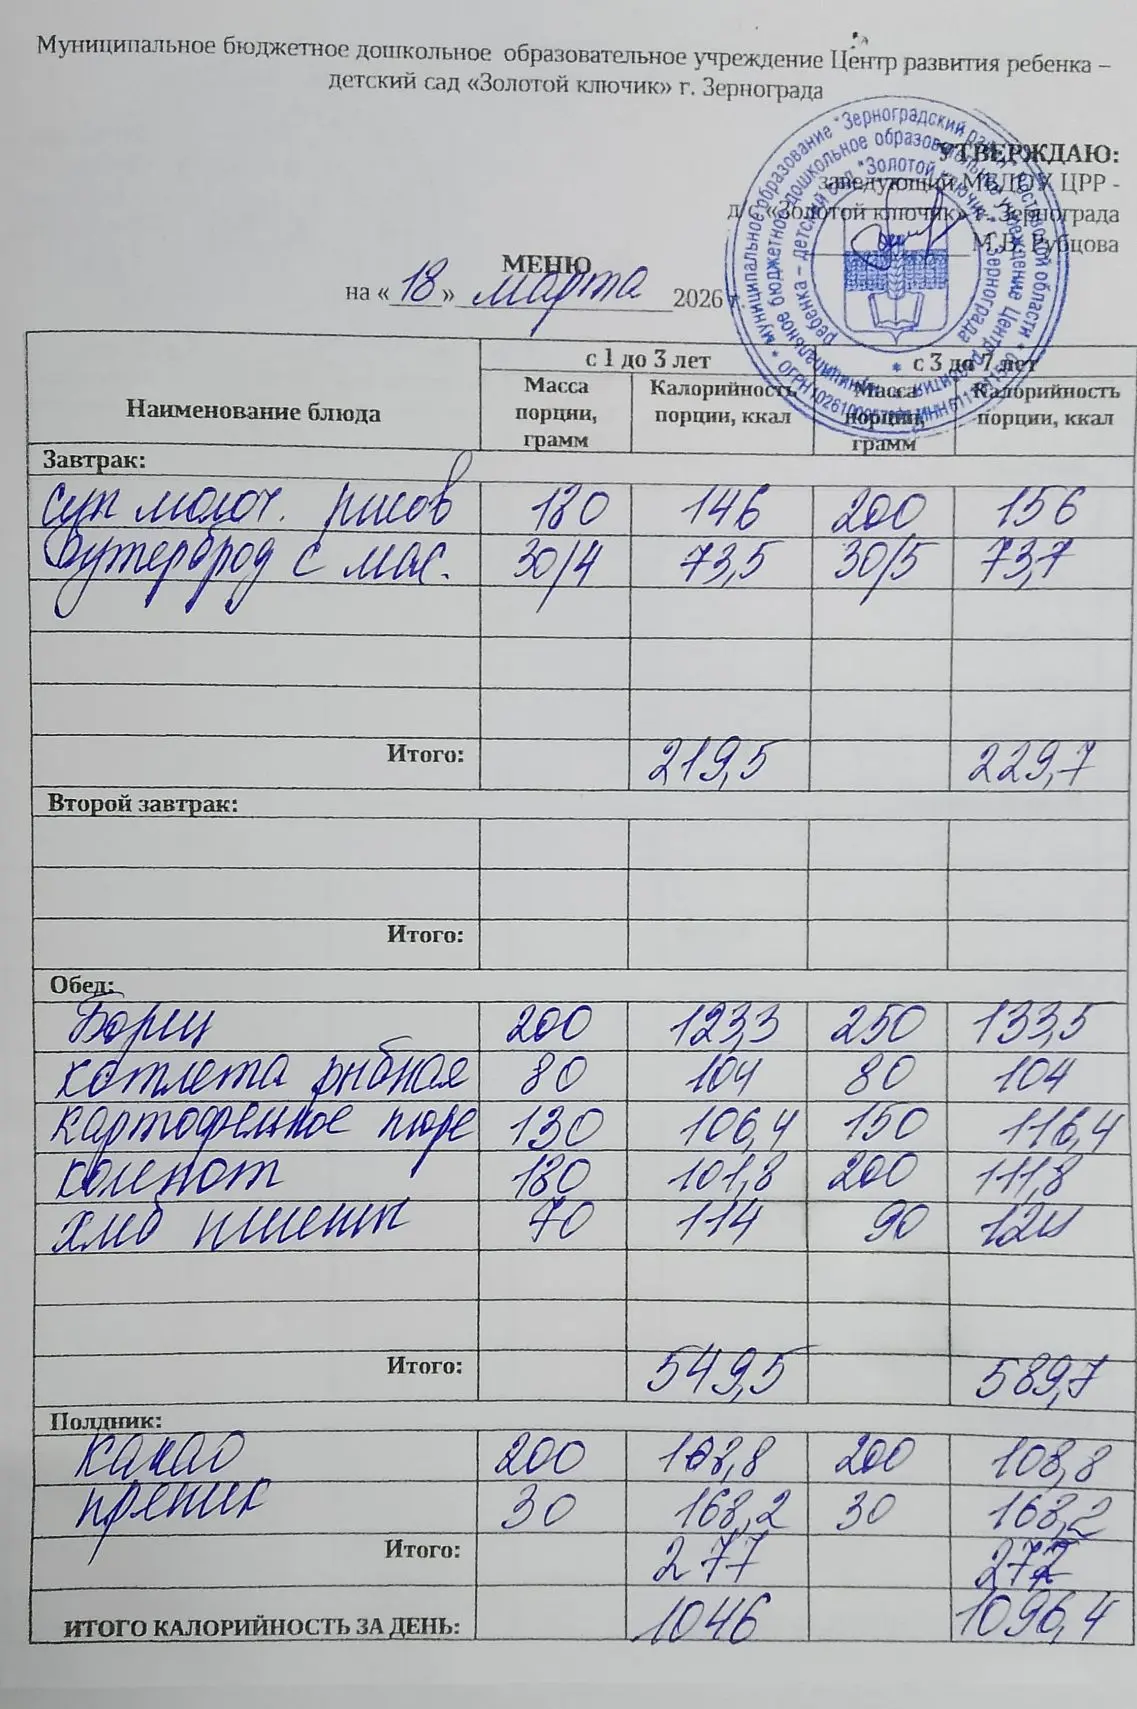 Муниципальное бюджетное дошкольное образовательное учреждение Центр развития ребенка –
детский сад «Золотой ключик» г. Зернограда
УТВЕРЖДАЮ:
заведующий МБДОУ ЦРР -
д/с «Золотой ключик» г. Зернограда
М.В. Рубцова
МЕНЮ
на «18» марта 2026 г.
Наименование блюда с 1 до 3 лет с 3 до 7 лет
Масса порции, грамм Калорийность порции, ккал Масса порции, грамм Калорийность порции, ккал
Завтрак:
суп молоч. рисов 180 146 200 156
Бутерброд с мас. 30/4 73,5 30/5 73,7
Итого: 219,5 229,7
Второй завтрак:
Итого:
Обед:
Борщ 200 123,3 250 133,5
котлета рыбная 80 104 80 104
картофельное пюре 130 106,4 150 116,4
компот 180 101,8 200 111,8
хлеб пшенич 70 114 90
Итого: 549,5 589,7
Полдник:
Какао 200 108,8 200 108,8
пряник 30 168,2 30 168,2
Итого: 277 277
ИТОГО КАЛОРИЙНОСТЬ ЗА ДЕНЬ: 1046 1096,4